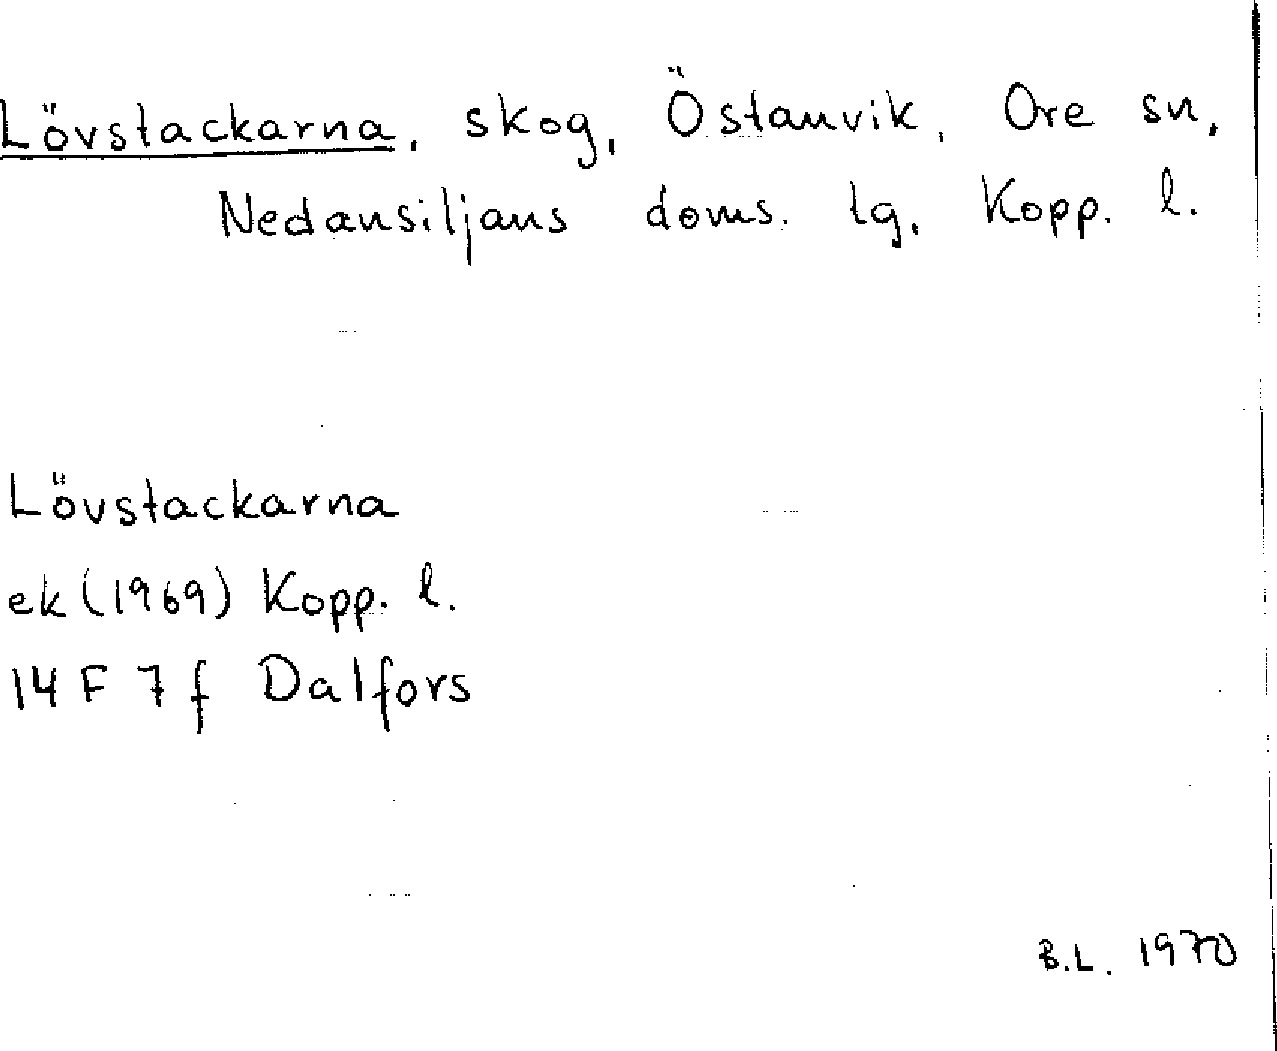 Lövstackarna, skog, Östanvik, Ore sn,
Nedansiljans doms. tg, Kopp. l.
Lövstackarna
ek (1969) Kopp. l.
14 F 7 f Dalfors
B.L. 1970